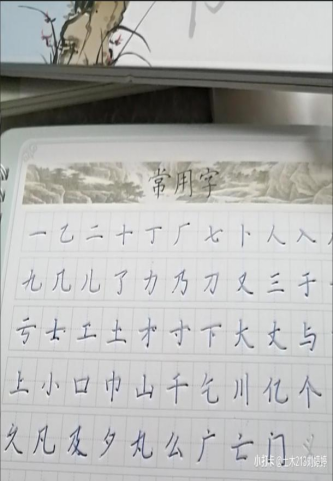 常用字
一乙二十丁厂七卜人入
九几儿了力乃刀又三于
亏士工土才寸下大丈与
上小口巾山千乞川亿个
久凡及夕丸么广亡门